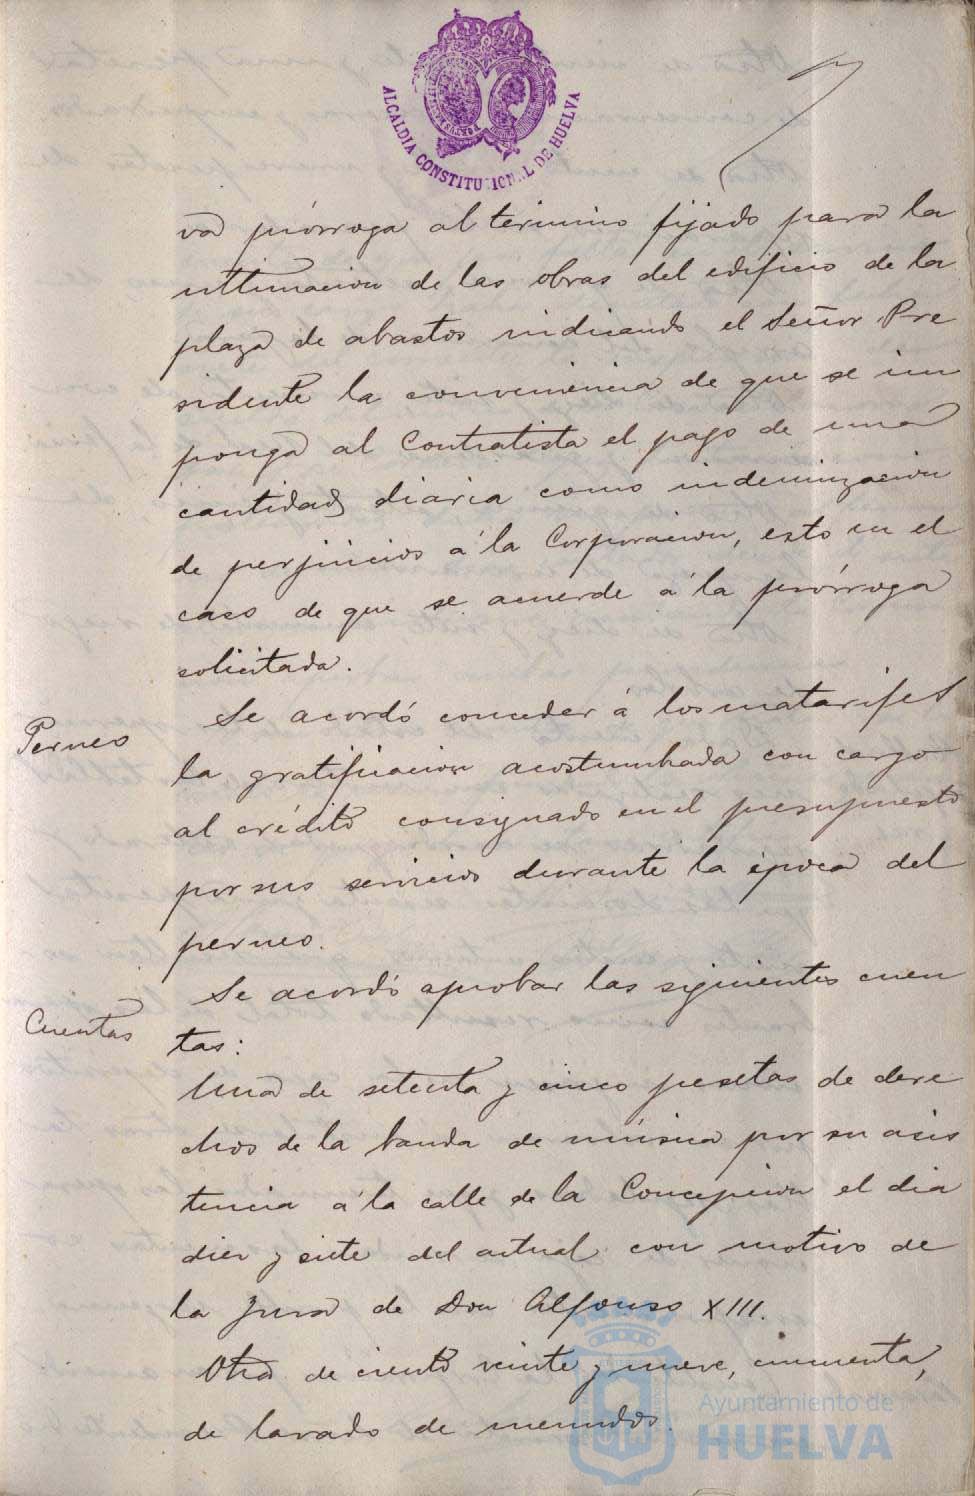 ALCALDIA CONSTITUCIONAL DE HUELVA
va prórroga al termino fijado para la
ultimacion de las obras del edificio de la
plaza de abastos indicando el Señor Pre
sidente la conveniencia de que se im
ponga al Contratista el pago de una
cantidad diaria como indemnizacion
de perjuicios á la Corporacion, esto en el
caso de que se acuerde á la prórroga
solicitada.
Perneo
Se acordó conceder á los matarifes
la gratificacion acostumbrada con cargo
al crédito consignado en el presupuesto
por sus servicios durante la época del
perneo.
Cuentas
Se acordó aprobar las siguientes cuen
tas:
Una de setenta y cinco pesetas de dere
chos de la banda de música por su asis
tencia á la calle de la Concepcion el dia
diez y siete del actual con motivo de
la Jura de Don Alfonso XIII.
Otra de ciento veinte y nueve, cincuenta,
de lavado de menudos.
Ayuntamiento de
HUELVA